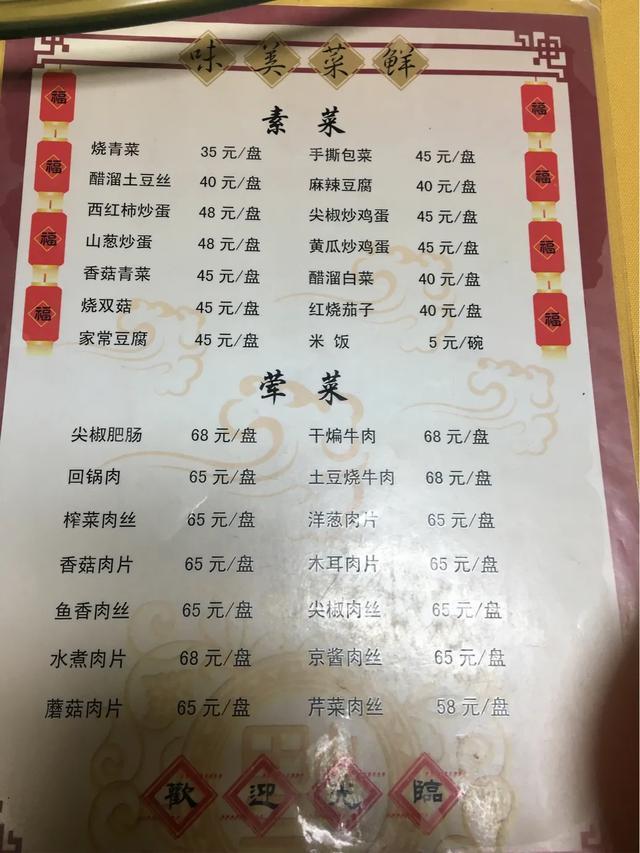 味美菜鲜
福
福
福
福
福
福
福
福
素菜
烧青菜 35元/盘 手撕包菜 45元/盘
醋溜土豆丝 40元/盘 麻辣豆腐 40元/盘
西红柿炒蛋 48元/盘 尖椒炒鸡蛋 45元/盘
山葱炒蛋 48元/盘 黄瓜炒鸡蛋 45元/盘
香菇青菜 45元/盘 醋溜白菜 40元/盘
烧双菇 45元/盘 红烧茄子 40元/盘
家常豆腐 45元/盘 米饭 5元/碗
荤菜
尖椒肥肠 68元/盘 干煸牛肉 68元/盘
回锅肉 65元/盘 土豆烧牛肉 68元/盘
榨菜肉丝 65元/盘 洋葱肉片 65元/盘
香菇肉片 65元/盘 木耳肉片 65元/盘
鱼香肉丝 65元/盘 尖椒肉丝 65元/盘
水煮肉片 68元/盘 京酱肉丝 65元/盘
蘑菇肉片 65元/盘 芹菜肉丝 58元/盘
歡迎光臨